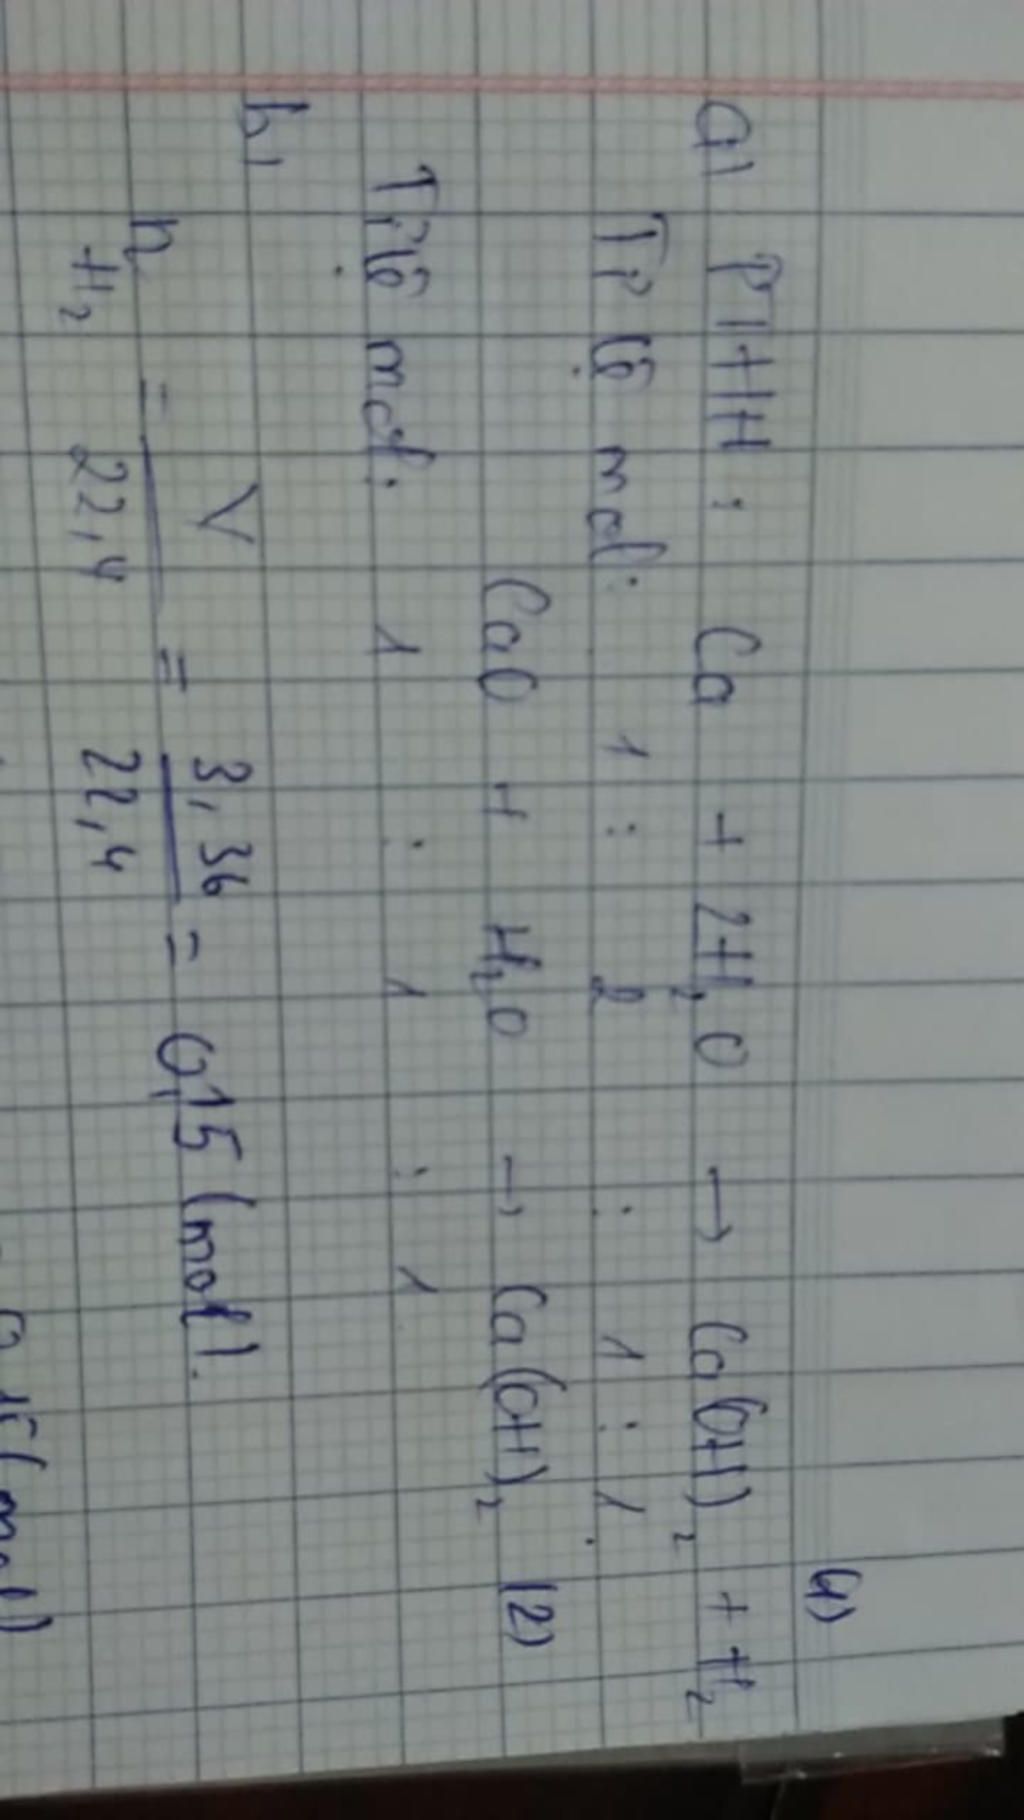 (1)
a) PTHH: Ca + 2H₂O → Ca(OH)₂ + H₂
Tỉ lệ mol: 1 : 2 : 1 : 1.
CaO + H₂O → Ca(OH)₂ (2)
Tỉ lệ mol: 1 : 1 : 1
b)
n H₂ = V / 22,4 = 3,36 / 22,4 = 0,15 (mol).
0,15 (mol)